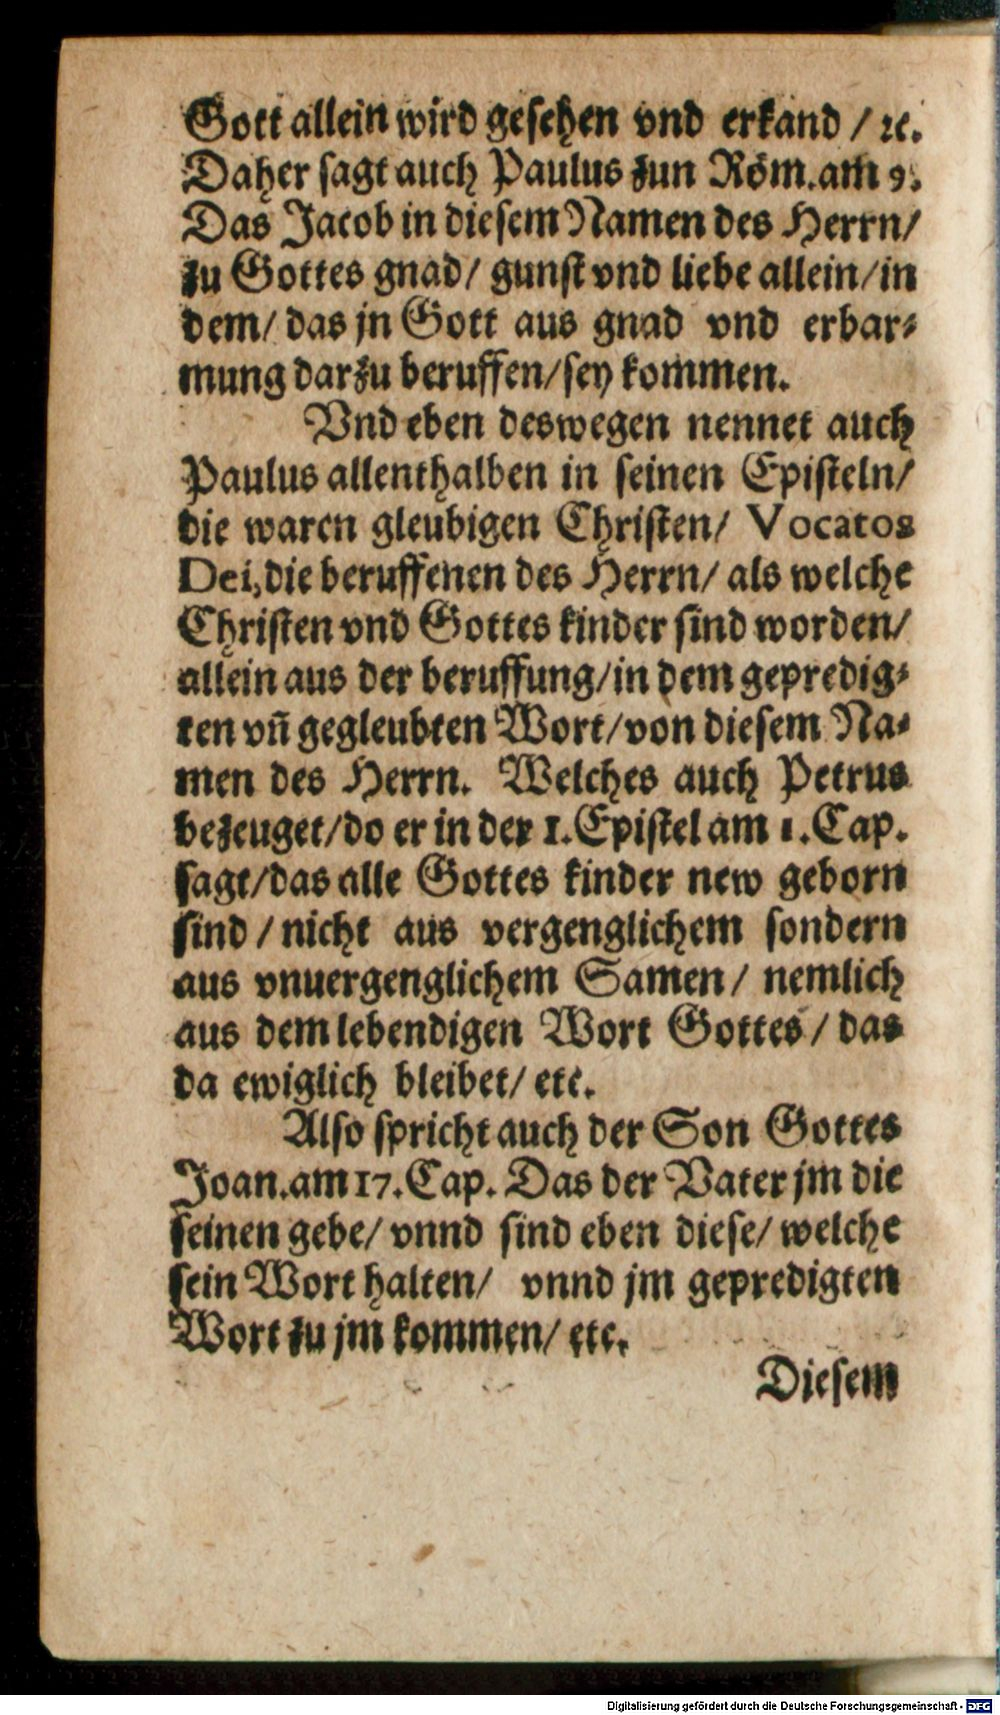 Gott allein wird gesehen vnd erkand / ꝛc.
Daher sagt auch Paulus zun Röm. am 9.
Das Jacob in diesem Namen des Herrn/
zu Gottes gnad/ gunst vnd liebe allein/ in
dem/ das jn Gott aus gnad vnd erbar⸗
mung darzu beruffen/ sey kommen.
Vnd eben deswegen nennet auch
Paulus allenthalben in seinen Episteln/
die waren gleubigen Christen/ Vocatos
Dei, die beruffenen des Herrn/ als welche
Christen vnd Gottes kinder sind worden/
allein aus der beruffung/ in dem gepredig⸗
ten vñ gegleubten Wort/ von diesem Na⸗
men des Herrn. Welches auch Petrus
bezeuget/ do er in der 1. Epistel am 1. Cap.
sagt/ das alle Gottes kinder new geborn
sind / nicht aus vergenglichem sondern
aus vnuergenglichem Samen/ nemlich
aus dem lebendigen Wort Gottes/ das
da ewiglich bleibet/ etc.
Also spricht auch der Son Gottes
Joan. am 17. Cap. Das der Vater jm die
seinen gebe/ vnnd sind eben diese/ welche
sein Wort halten/ vnnd jm gepredigten
Wort zu jm kommen/ etc.
Diesem
Digitalisierung gefördert durch die Deutsche Forschungsgemeinschaft - DFG